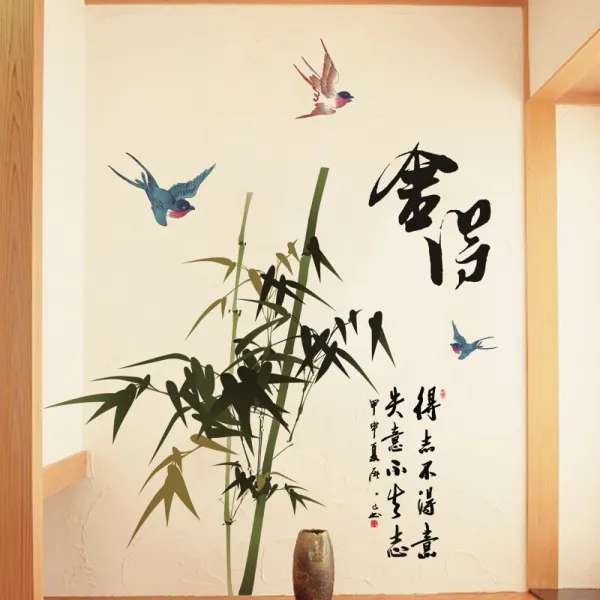 舍得
得志不得意
失意不失志
甲申夏